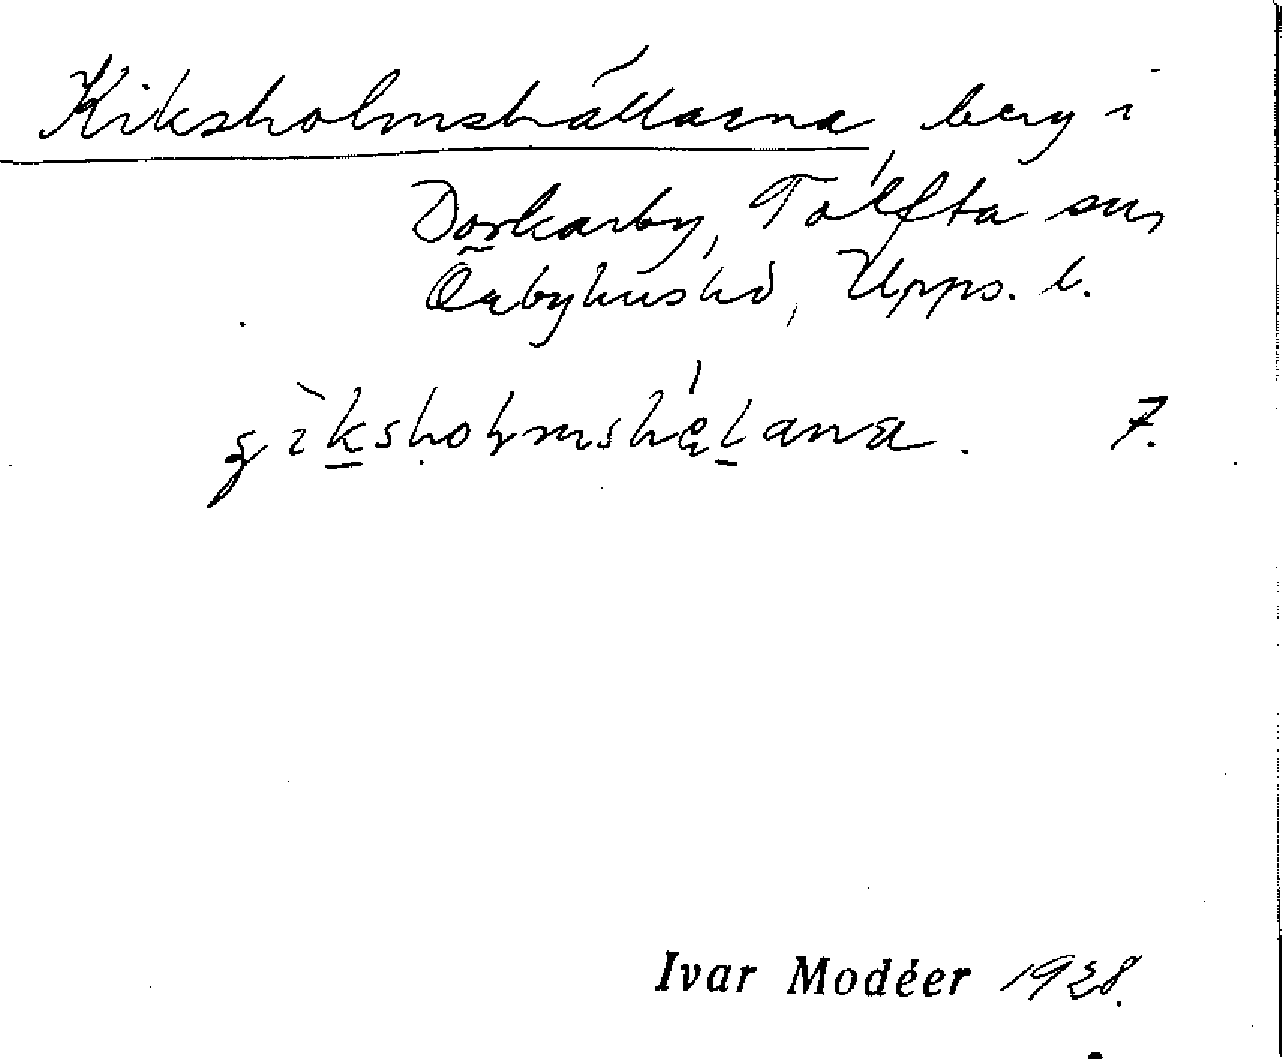 Kiksholmshällarna, berg i
Dorkarby, Tolfta sn,
Örbyhus hd, Upps. l.
7.
Ivar Modéer 1928.